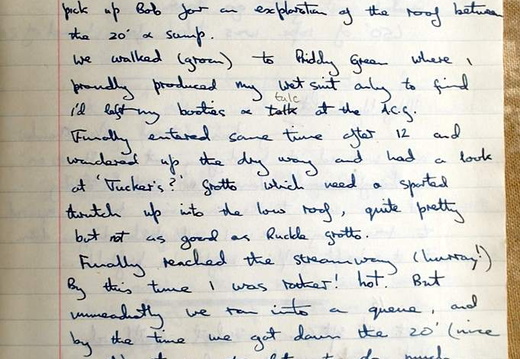 pick up Bob for an exploration of the roof between
the 20' & sump.
We walked (groan) to Priddy Green where I
proudly produced my wetsuit only to find
talc
i'd left my booties & talk at the A.C.G.
Finally entered some time after 12 and
wandered up the dry way and had a look
at 'Tucker's?' Grotto which need a spirited
thrutch up into the low roof, quite pretty
but not as good as Ruckle grotto.
Finally reached the streamway (hurray!)
By this time I was rather! hot. But
immediately we ran into a queue, and
by the time we got down the 20' (nice